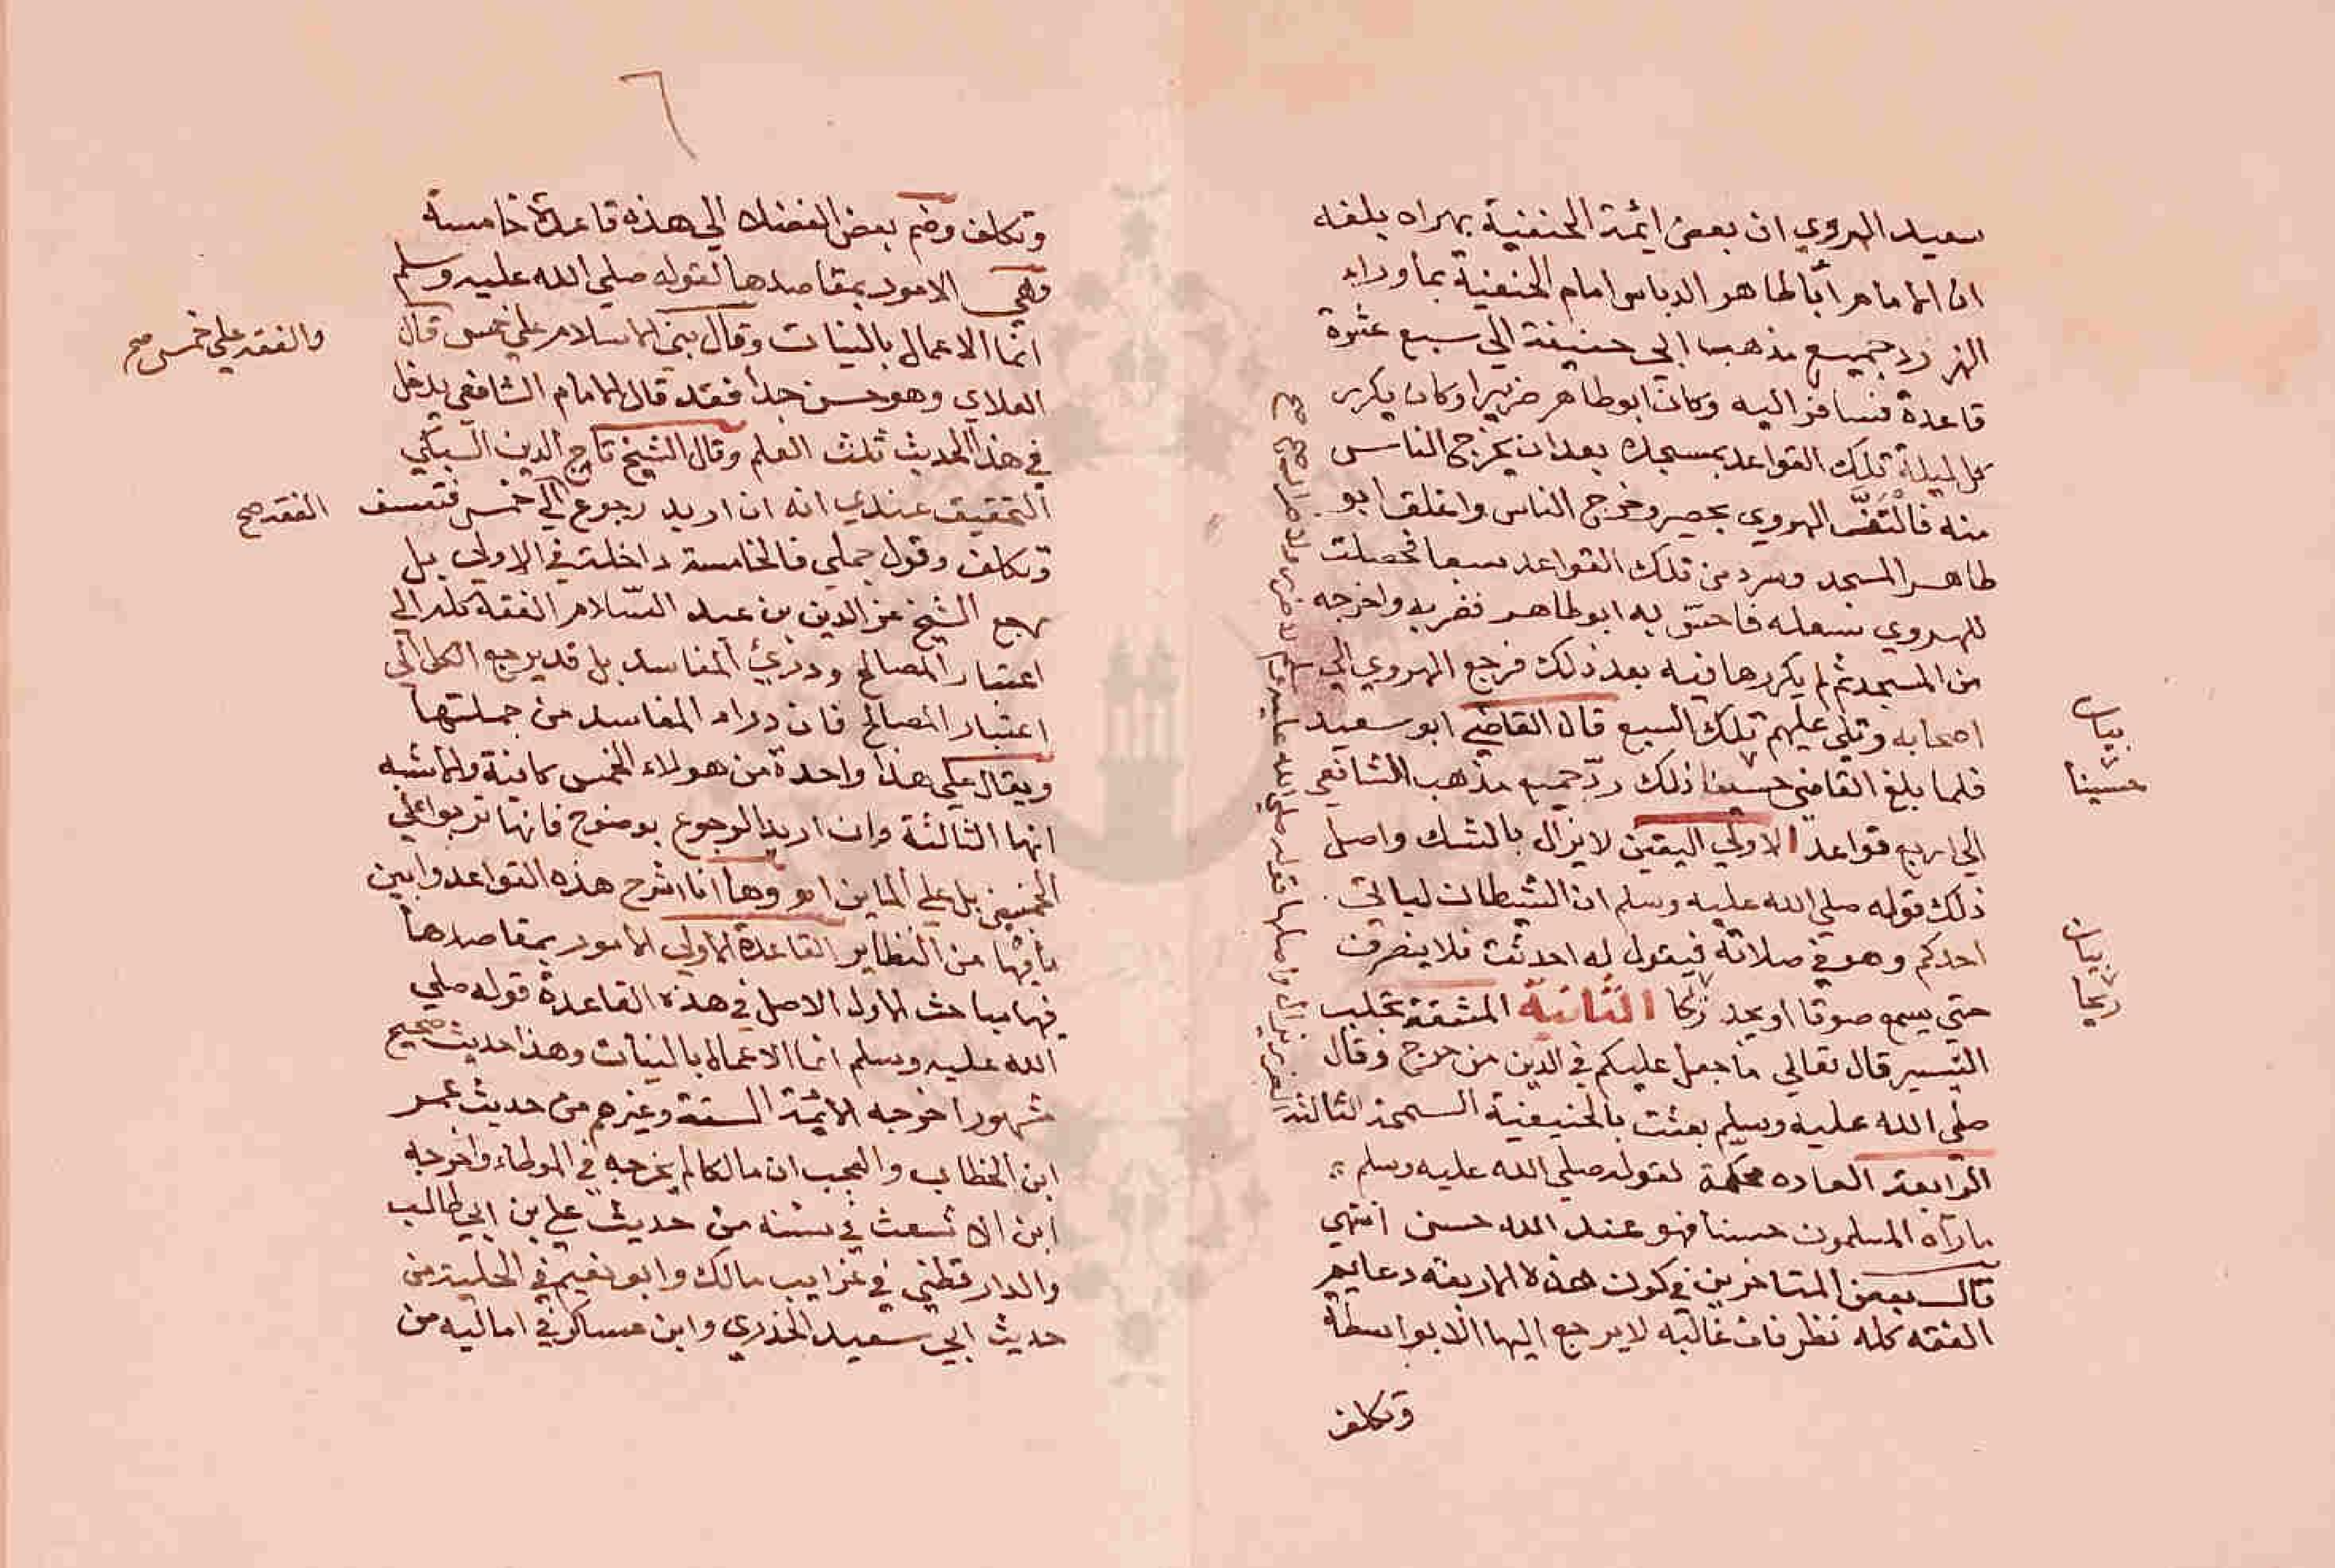 سعيد الهروي ان بعض ائمة الحنفية بهراه بلغه
ان الامام أبا طاهر الدباس امام الحنفية بما وراء
النهر رد جميع مذهب ابي حنيفة الي سبع عشرة
قاعدة فسافر اليه وكان ابو طاهر ضريرا وكان يكرر
كل ليلة تلك القواعد بمسجده بعد ان يخرج الناس
منه فالتف الهروي بحصير وخرج الناس واغلق ابو
طاهر المسجد وسرد من تلك القواعد سبعا فحصلت
للهروي سعله فاحس به ابو طاهر فضربه واخرجه
من المسجد ثم لم يكررها فيه بعد ذلك فرجع الهروي الي
اصحابه وتلي عليهم تلك السبع قال القاضي ابو سعيد
فلما بلغ القاضي حسينا ذلك ردّ جميع مذهب الشافعي
الي اربع قواعد الاولي اليقين لا يزال بالشك واصل
ذلك قوله صلي الله عليه وسلم ان الشيطان لياتي
احدكم وهو في صلاته فيقول له احدثت فلا ينصرف
حتي يسمع صوتا او يجد ريحا الثانية المشقة تجلب
التيسير قال تعالي ما جعل عليكم في الدين من حرج وقال
صلي الله عليه وسلم بعثت بالحنيفية السمحة الثالثة
الرابعة العاده محكمة لقوله صلي الله عليه وسلم
ما رآه المسلمون حسنا فهو عند الله حسن انتهي
قال بعض المتاخرين في كون هذه الاربعة دعايم
الفقه كله نظر فان غالبه لا يرجع اليها الا بواسطة
وتكلف
بيان
حسينا
بيان
ريحا
الضرر يزال واصلها قوله صلي الله عليه وسلم لا ضرر ولا ضرار
٦
وتكلف وضم بعض الفضلاء الي هذه قاعدة خامسة
وهي الامور بمقاصدها لقوله صلي الله عليه وسلم
انما الاعمال بالنيات وقال بني الاسلام علي خمس قال
العلاي وهو حسن جدا فقد قال الامام الشافعي يدخل
في هذا الحديث ثلث العلم وقال الشيخ تاج الدين السبكي
التحقيق عندي انه ان اريد رجوع الي خمس فتعسف
وتكلف وقول جملي فالخامسة داخلة في الاولي بل
رجع الشيخ عز الدين بن عبد السّلام الفقه كله الي
اعتبار المصالح ودرئ المفاسد بل قد يرجع الكل الي
اعتبار المصالح فان دراء المفاسد من جملتها
ويقال علي هذا واحدة من هولاء الخمس كافية والاشبه
انها الثالثة وان اريد الرجوع بوضوح فانها تربو علي
الخمسين بل علي الماين اهو وها انا اشرح هذه القواعد وابين
ما فيها من النظاير القاعدة الاولي الامور بمقاصدها
فيها مباحث الاول الاصل في هذه القاعدة قوله صلي
الله عليه وسلم انما الاعمال بالنيات وهذا حديث صحيح
شهور اخرجه الائمة الستة وغيرهم من حديث عمر
ابن الخطاب والعجب ان مالكا لم يخرجه في الموطاء واخرجه
ابن الاشعث في سننه من حديث علي بن ابي طالب
والدارقطني في غرايب مالك وابو نعيم في الحلية من
حديث ابي سعيد الخذري وابن عساكر في اماليه من
والفقه علي خمس صح
الفقه صح